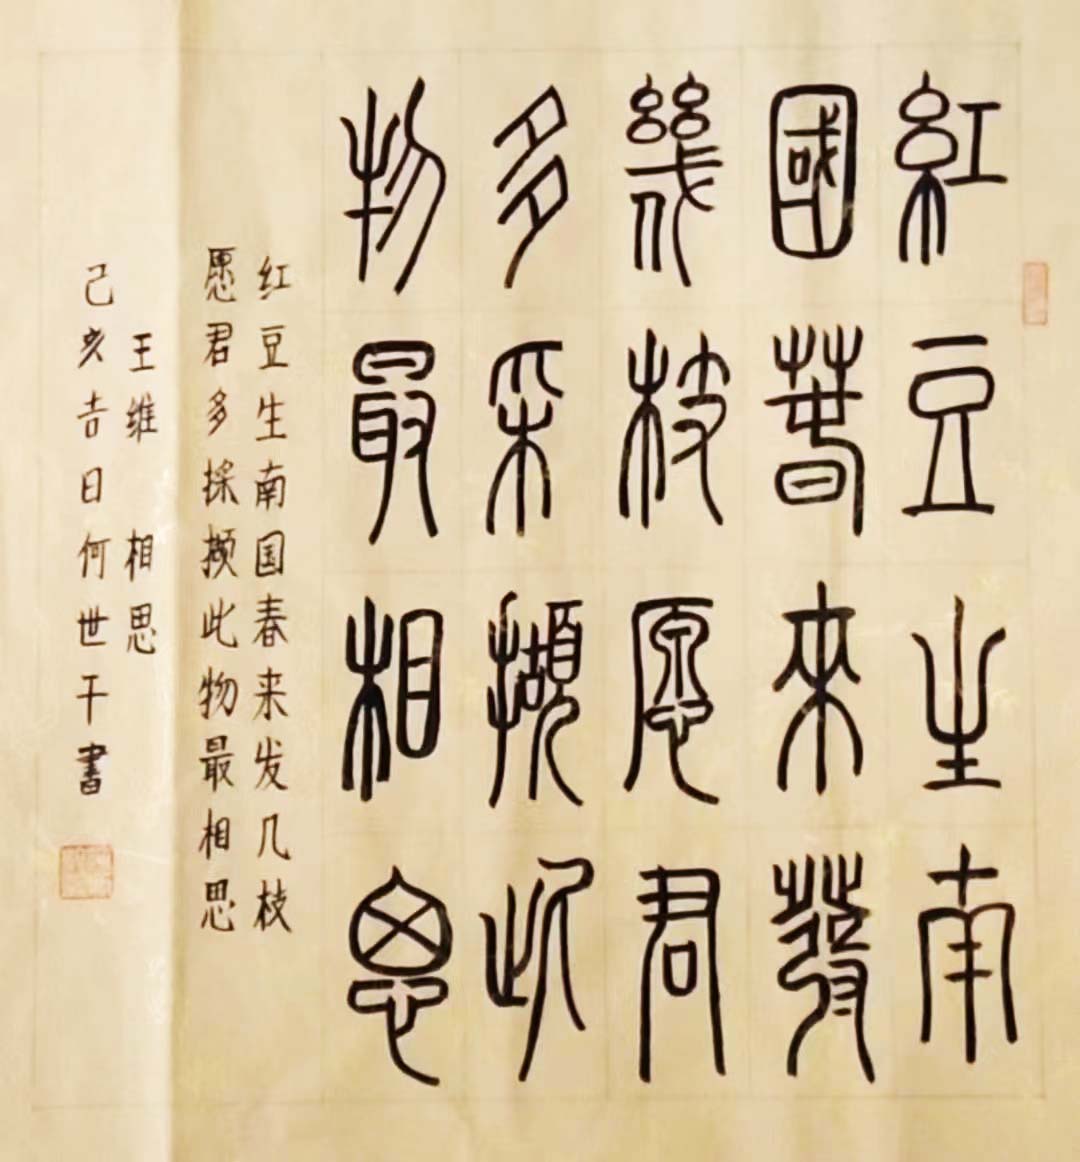 紅豆生南
國萅來發
幾枝愿君
多采擷此
物最相思
红豆生南国春来发几枝
愿君多採撷此物最相思
王维 相思
己亥吉日何世干書